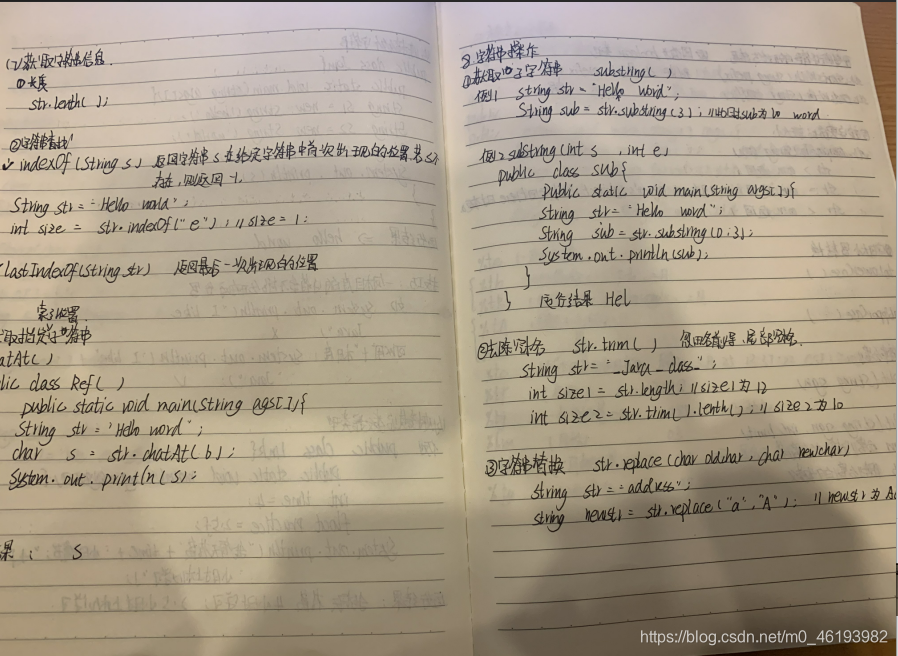 (7)获取字符串信息
①长度
str.lenth( );
②字符串查找
indexOf(String s) 返回字符串s在给定字符串中首次出现的位置,若s不
存在,则返回-1.
String str="Hello world";
int size = str.indexOf("e"); //size=1;
lastIndexOf(String.str) 返回最后一次出现的位置
索引位置
取指定字符串
atAt( )
lic class Ref( )
public static void main(String agst[]){
String str="Hello word";
char s = str.chatAt(6);
System.out.println(s);
果: S
8.字符串操作
①获取 子字符串 substring( )
例1 String str="Hello word";
String sub=str.substring(3); //此时sub为lo word
例2 substring(int s ,int e)
public class sub{
public static void main(String args[]){
String str="Hello word";
String sub=str.substring(0,3);
System.out.println(sub);
}
} 运行结果 Hel
②去除空格 str.trim( )
String str="_Java_class_";
int size1=str.length; //size1为12
int size2=str.trim( ).lenth( ); //size2为10
③字符串替换 str.replace(char oldchar, char newchar)
String str="address";
String newstr=str.replace("a","A"); //newstr为A
https://blog.csdn.net/m0_46193982